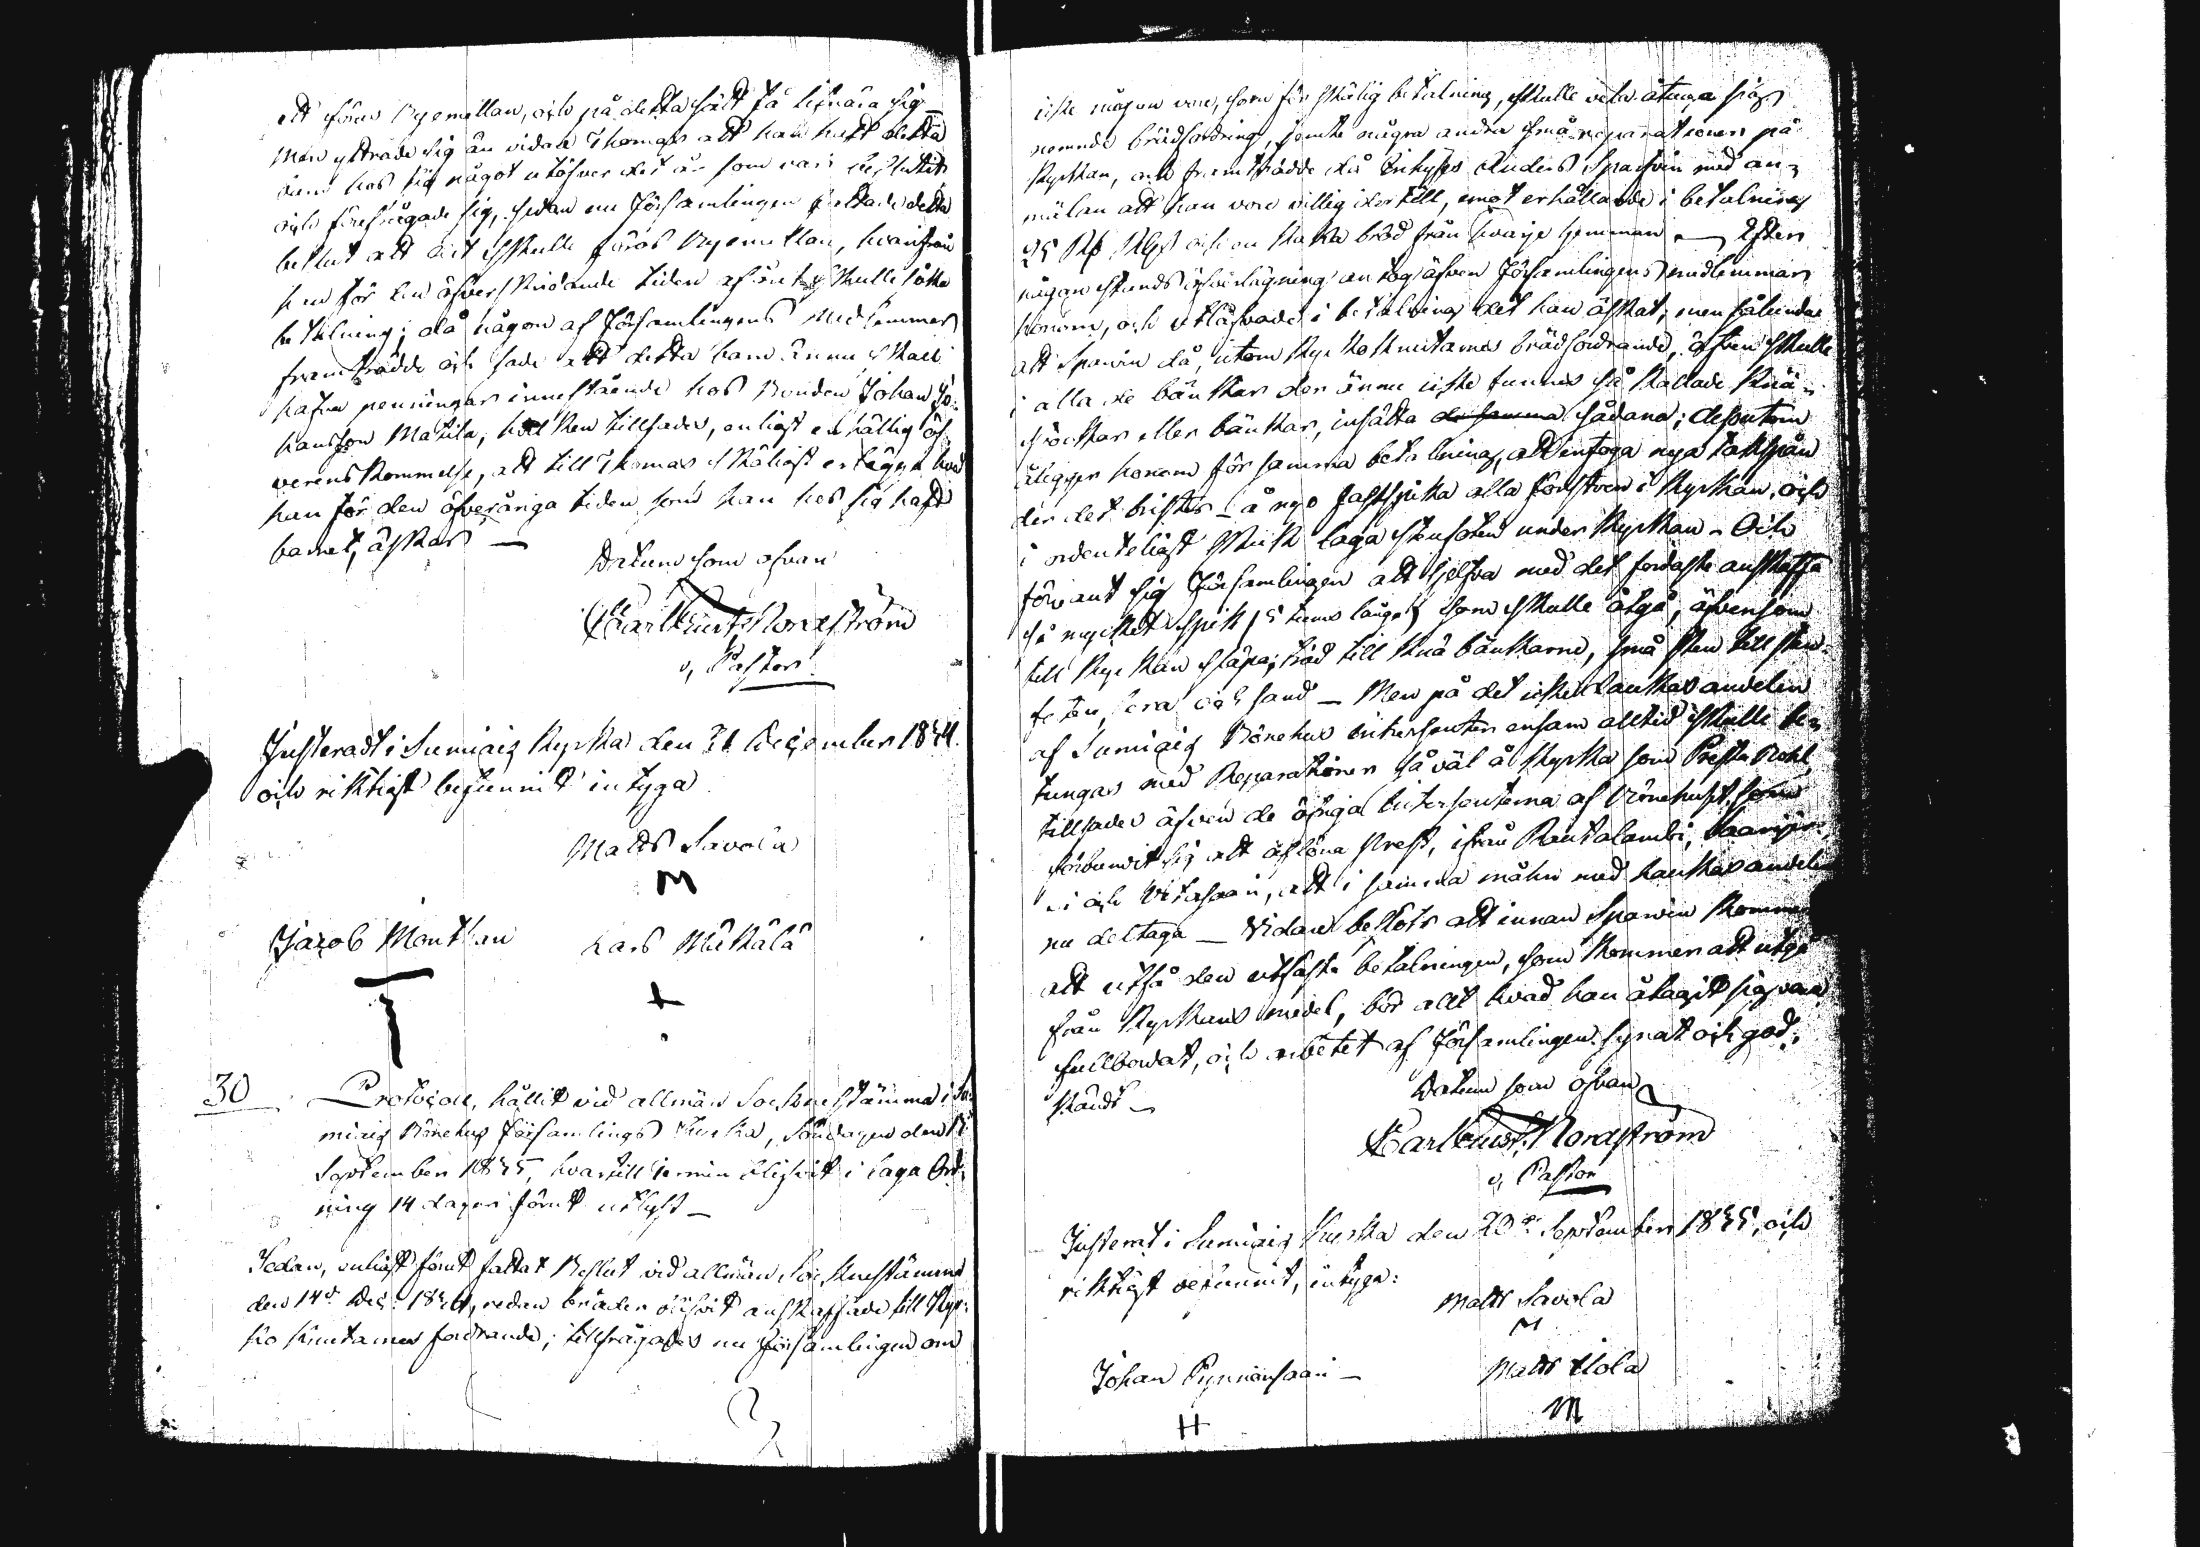 att föras Byemellan, och på detta sätt få lifnära sig —
Men yttrade sig än vidare Thomas att han haft detta
barn hos sig något utöfver det år som var beslutit
och förefrågade sig, sedan nu Församlingen fattade detta
beslut att det skulle föras Byemellan, hvarifrån
han för den öfverskridande tiden skulle söka
betalning; då någon af Församlingens Medlemmar
framträdde och sade att detta barn ännu skall
hafva penningar innestående hos Bonden Johan Jo-
hansson Matila, hvilken tillsades, enligt enhällig öf-
verenskommelse, att till Thomas skäligt erlägga hvad
han för den öfveråriga tiden som han hos sig haft
barnet, äskar —
Datum som ofvan
Carl Gust. Nordström
v, Pastor
Justeradt i Sumiais Kyrka den 31 December 1854.
och riktigt befunnit intyga
Matts Savola
M
Jacob Montkan Lars Mäkälä
T +
30 Protocoll, hållit vid allmän Sockenstämma i Su-
miais Bönehus Församlings Kyrka, Söndagen den
September 1855, hvartill termin blifvit i laga Ord-
ning 14 dagar förut utlyst —
Sedan, enligt förut fattat Beslut vid allmän Sockenstämma
den 14de Dec. 1854, redan bräder blifvit anskaffade till Kyr-
ko knutarnes fodrande; tillfrågades nu Församlingen om
icke någon vore, som för skälig betalning, skulle vela åtaga sig
nemnde brädfodring, jemte några andra små reparationer på
Kyrkan, och framträdde då Inhyses Anders Sparfvin med an-
mälan att han vore villig dertill, emot erhållande i betalning
25 Rb Slfr och en kaka bröd från hvarje hemman — Efter
någon stunds öfverlägning antog äfven Församlingens medlemmar
honom, och utlåfvade i betalning det han äskat; men
att Sparvin då, utom Kyrkoknutarnes brädfodrande, äfven skulle
i alla de bänkar der ännu icke funnes så kallade Knä-
stockar eller bänkar, insätta de samma sådana; dessutom
åligger honom för samma betalning, att intaga nya takspån
der det brister — å nyo fastspika alla fodstren i Kyrkan, och
i ordenteligt skick laga stenfoten under Kyrkan — Och
förbant sig Församlingen att sjelfva med det fordaste anskaffa
så mycket spik (5 tums långa) som skulle åtgå, äfvensom
till Kyrkan släpa; träd till Knä bänkarne, små sten till sten-
foten, lera och sand — Men på det icke Haukasandelen
af Sumiais Bönehus intressenter ensam alltid skulle be-
tungas med Reparationer såväl å Kyrka som Preste Bohl,
tillsades äfven de öfriga Intressenterna af Bönehuset, som
förbundit sig att aflöna Prest, ifrån Rautalambi, Saarijär-
vi och Vitasaari, att i samma måhn med haukasandelen
nu deltaga — Vidare beslöts att innan Sparvin kommer
att utfå den utfäste betalningen, som kommer att utgå
från Kyrkans medel, bör allt hvad han åtagit sig vara
fullbordat, och arbetet af Församlingen synat och god-
kändt —
Datum som ofvan
Carl Gust. Nordström
v, Pastor
Justerat i Sumiais Kyrka den 23de September 1855, och
riktigt befunnit, intyga:
Matts Savola
M
Johan Pynnönsaari — Matts Ilola
H M